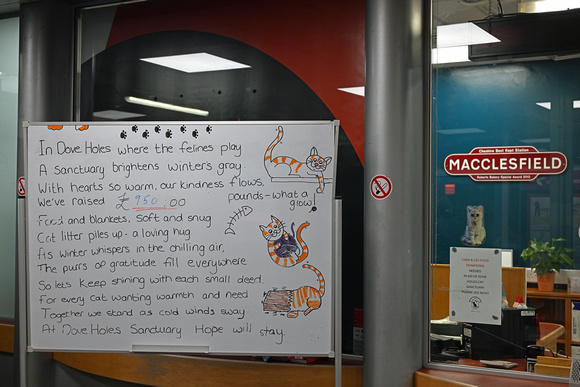 In Dove Holes where the felines play
A Sanctuary brightens winter's gray.
With hearts so warm, our kindness flows,
We've raised £950.00 pounds - what a glow!
Food and blankets, soft and snug
Cat litter piles up - a loving hug
As winter whispers in the chilling air,
The purrs of gratitude fill everywhere
So lets keep shining with each small deed.
For every cat wanting warmth and need
Together we stand as cold winds sway
At Dove Holes Sanctuary Hope will stay.
Cheshire Best Kept Station
MACCLESFIELD
Roberts Bakery Special Award 2012